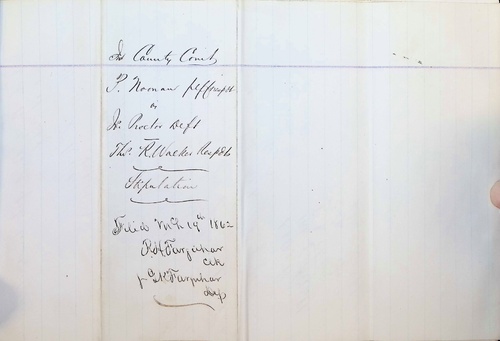 In County Court
P. Noonan
vs
Proctor Deft
Thos. K. Walker Respdt
Stipulation
Filed Mch 19th 1862
R H Farquhar
Clk
p G K Farquhar
Dep